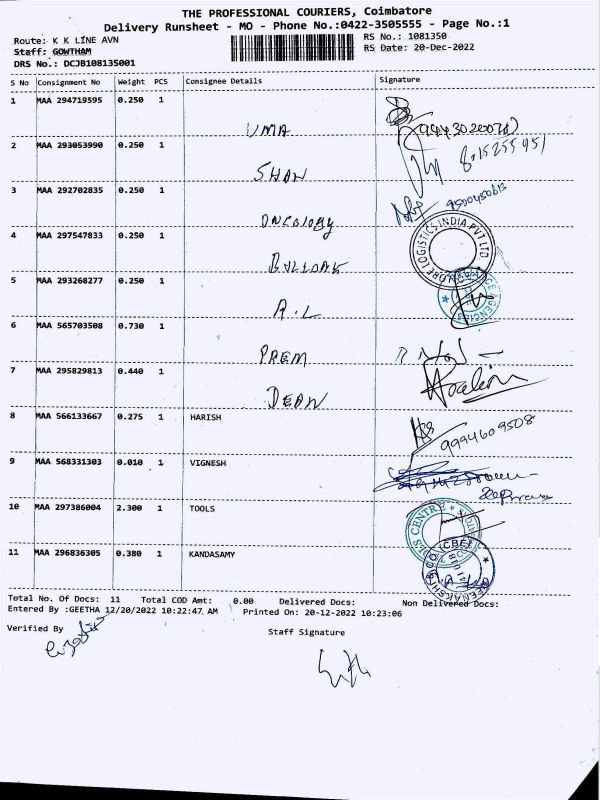 THE PROFESSIONAL COURIERS, Coimbatore
Delivery Runsheet - MO - Phone No.:0422-3505555 - Page No.:1
Route: K K LINE AVN
RS No.: 1081350
Staff: GOWTHAM
RS Date: 20-Dec-2022
DRS No.: DCJB108135001
S No Consignment No Weight PCS Consignee Details Signature
1 MAA 294719595 0.250 1
UMA
2 MAA 293053990 0.250 1
SHAN
3 MAA 292702835 0.250 1
ONCOLOGY
4 MAA 297547833 0.250 1
LOGISTICS INDIA PVT LTD
5 MAA 293268277 0.250 1
A.L
6 MAA 565703508 0.730 1
PREM
7 MAA 295829813 0.440 1
DEAN
8 MAA 566133667 0.275 1 HARISH
9994609508
9 MAA 568331303 0.010 1 VIGNESH
10 MAA 297386004 2.300 1 TOOLS
CENTRE
11 MAA 296836305 0.380 1 KANDASAMY
Total No. Of Docs: 11 Total COD Amt: 0.00 Delivered Docs: Non Delivered Docs:
Entered By :GEETHA 12/20/2022 10:22:47 AM Printed On: 20-12-2022 10:23:06
Verified By
Staff Signature